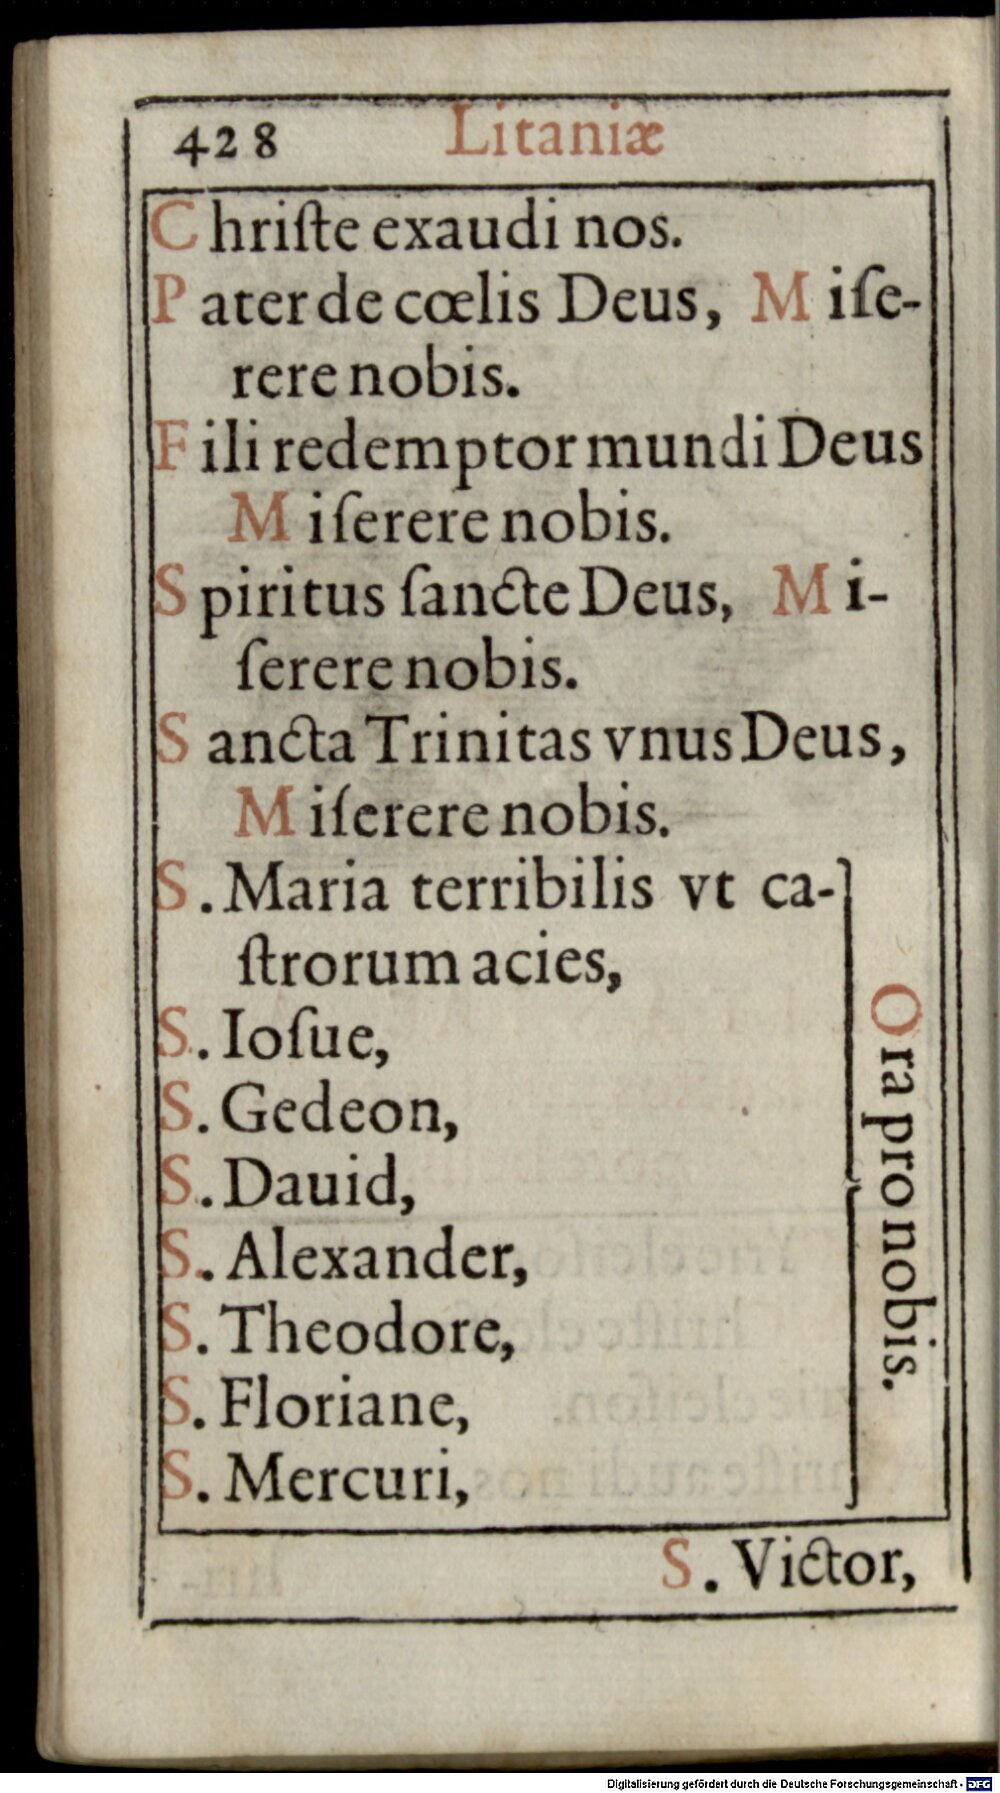 428 Litaniæ
Chriſte exaudi nos.
Pater de cœlis Deus, Miſe-
rere nobis.
Fili redemptor mundi Deus
Miſerere nobis.
Spiritus ſancte Deus, Mi-
ſerere nobis.
Sancta Trinitas vnus Deus,
Miſerere nobis.
S. Maria terribilis vt ca-
ſtrorum acies,
S. Ioſue,
S. Gedeon,
S. Dauid,
S. Alexander,
S. Theodore,
S. Floriane,
S. Mercuri,
Ora pro nobis.
S. Victor,
Digitalisierung gefördert durch die Deutsche Forschungsgemeinschaft - DFG